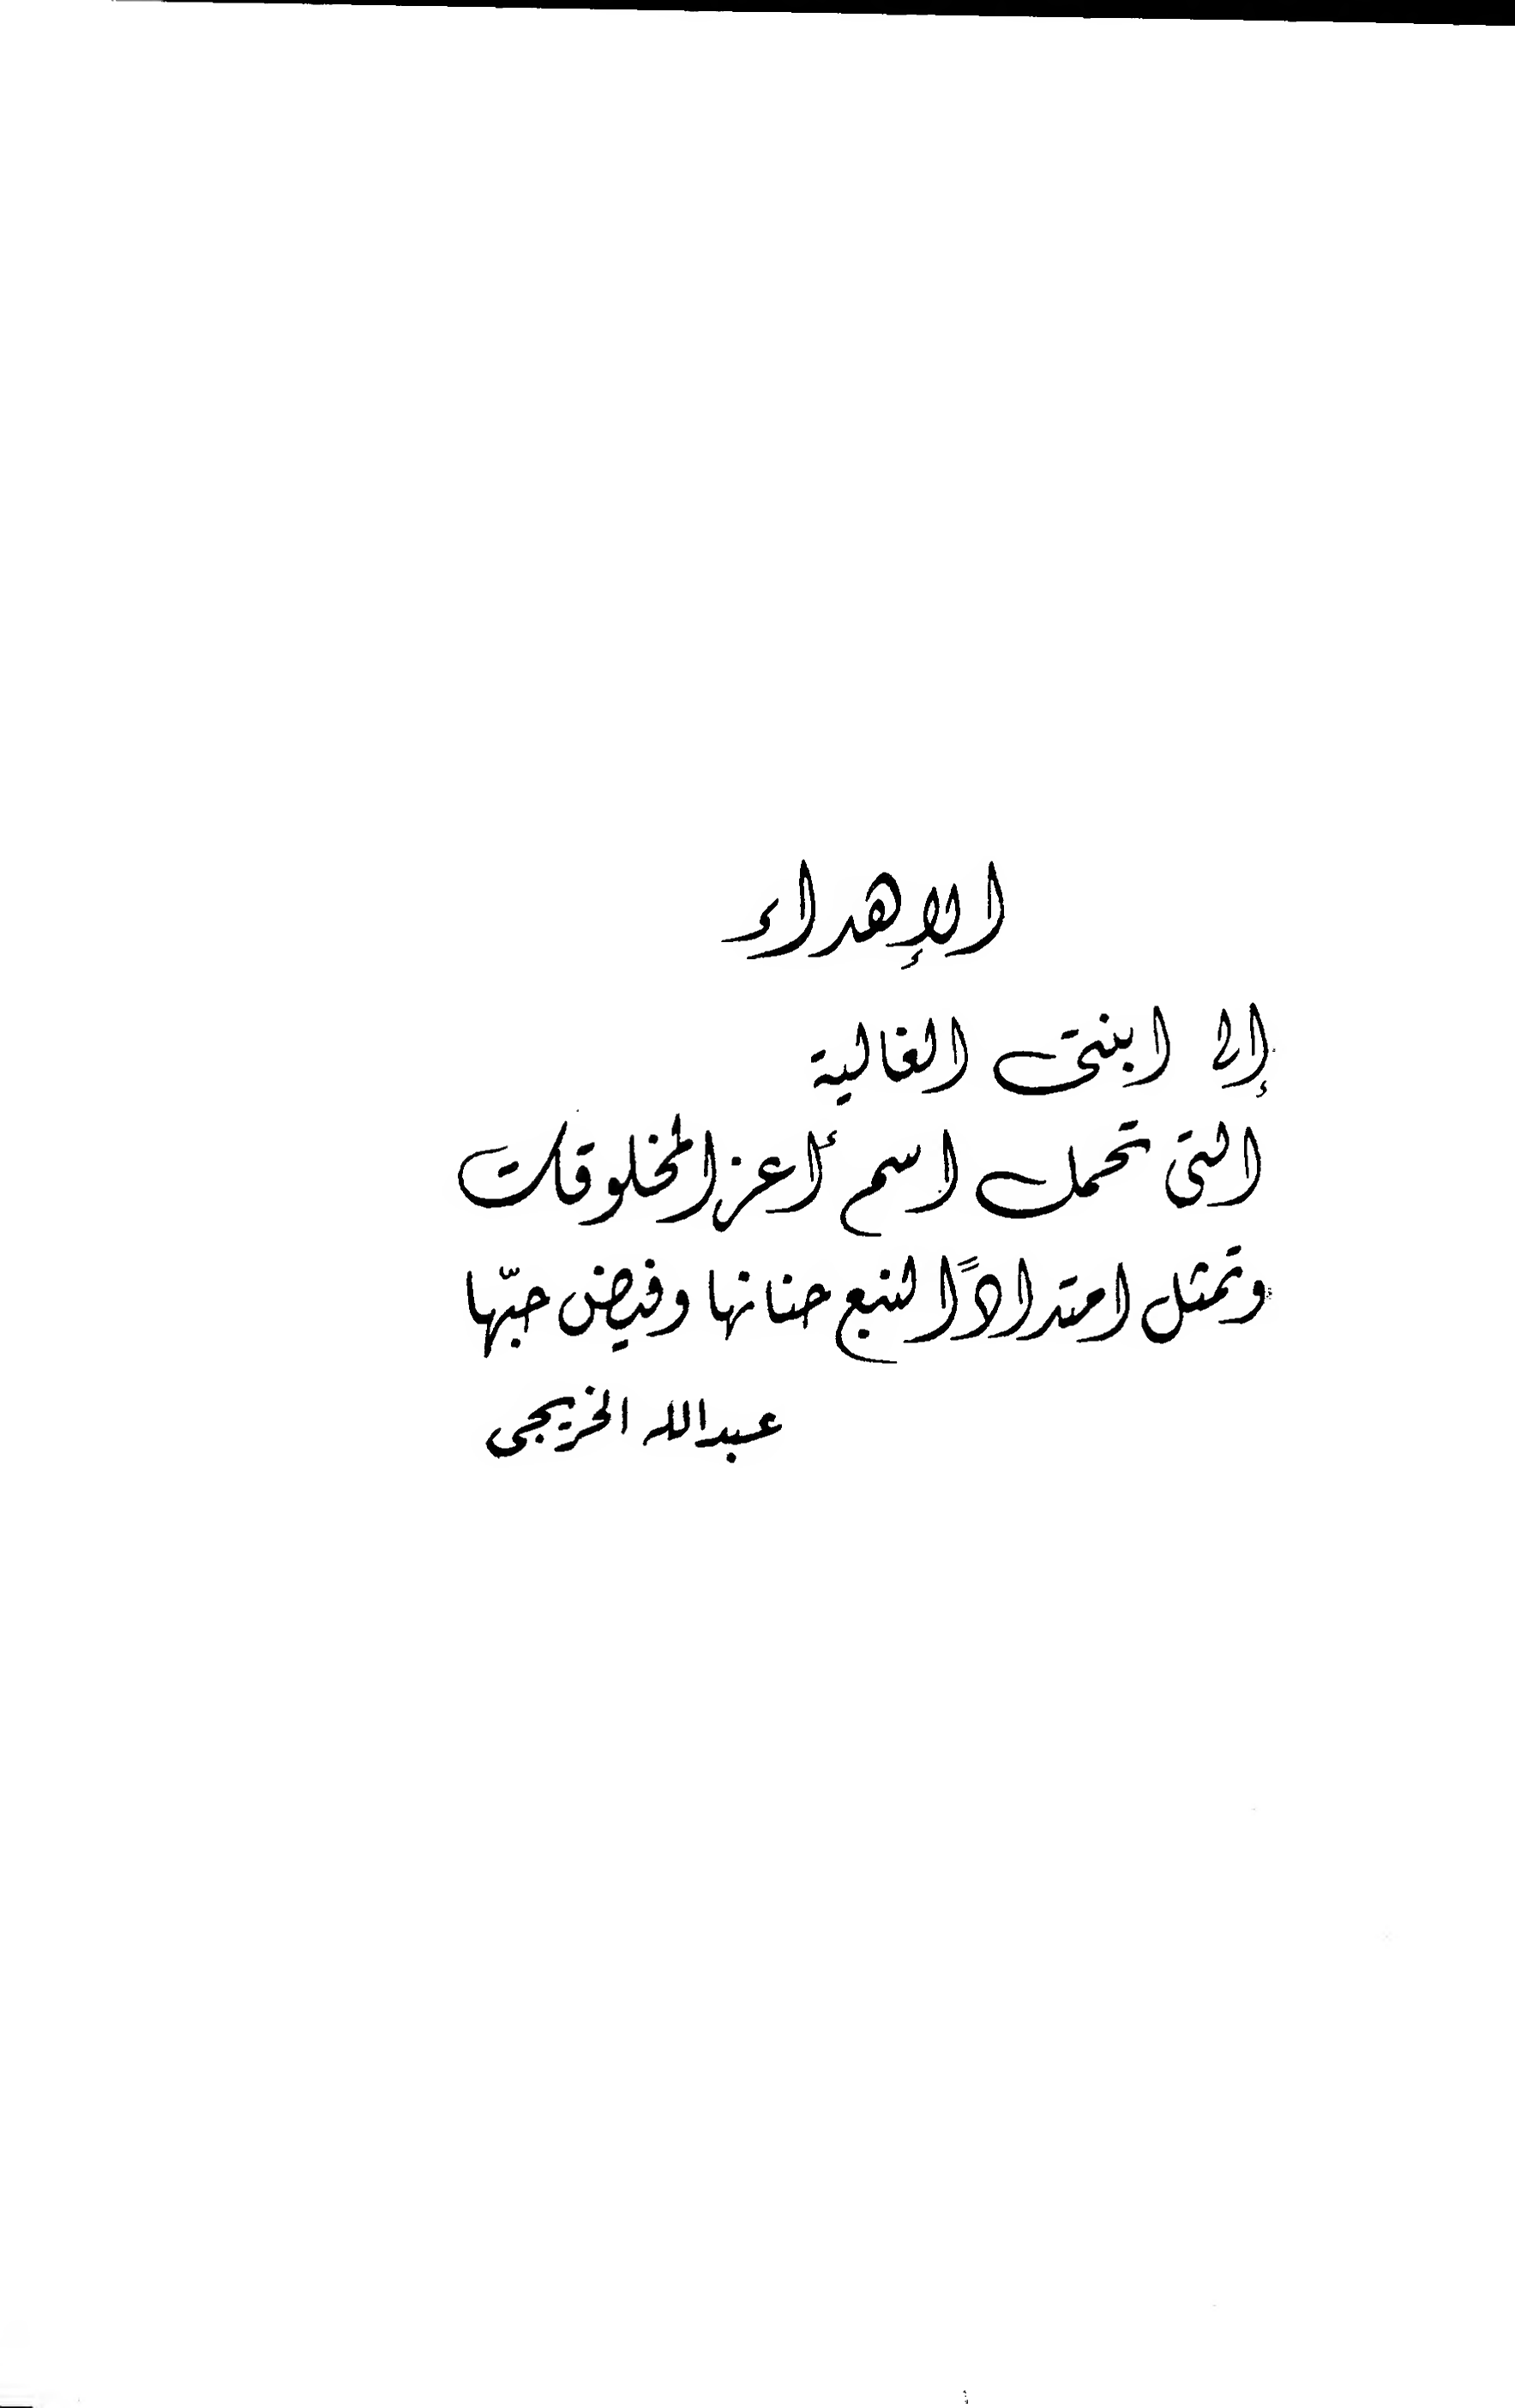 الإهداء
إلى ابنتى الغالية
التى تحمل اسم أعز المخلوقات
وتمثل امتدادًا لنبع حنانها وفيض حبّها
عبدالله الخريجى